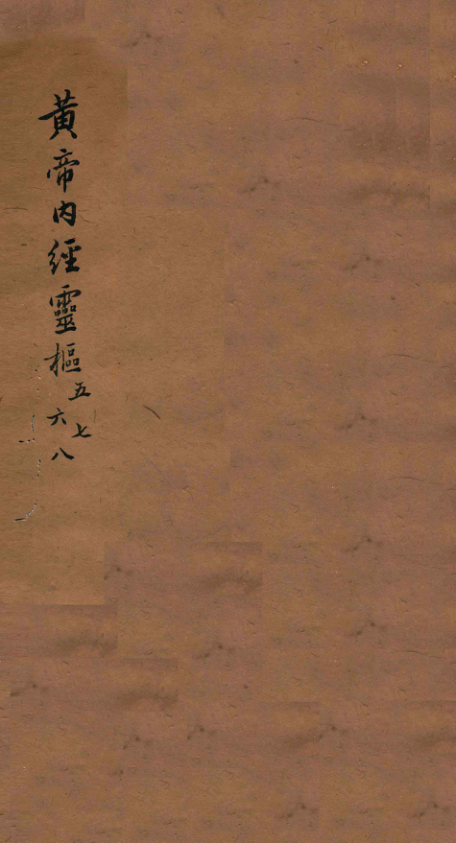 黄帝内經靈樞五六七八